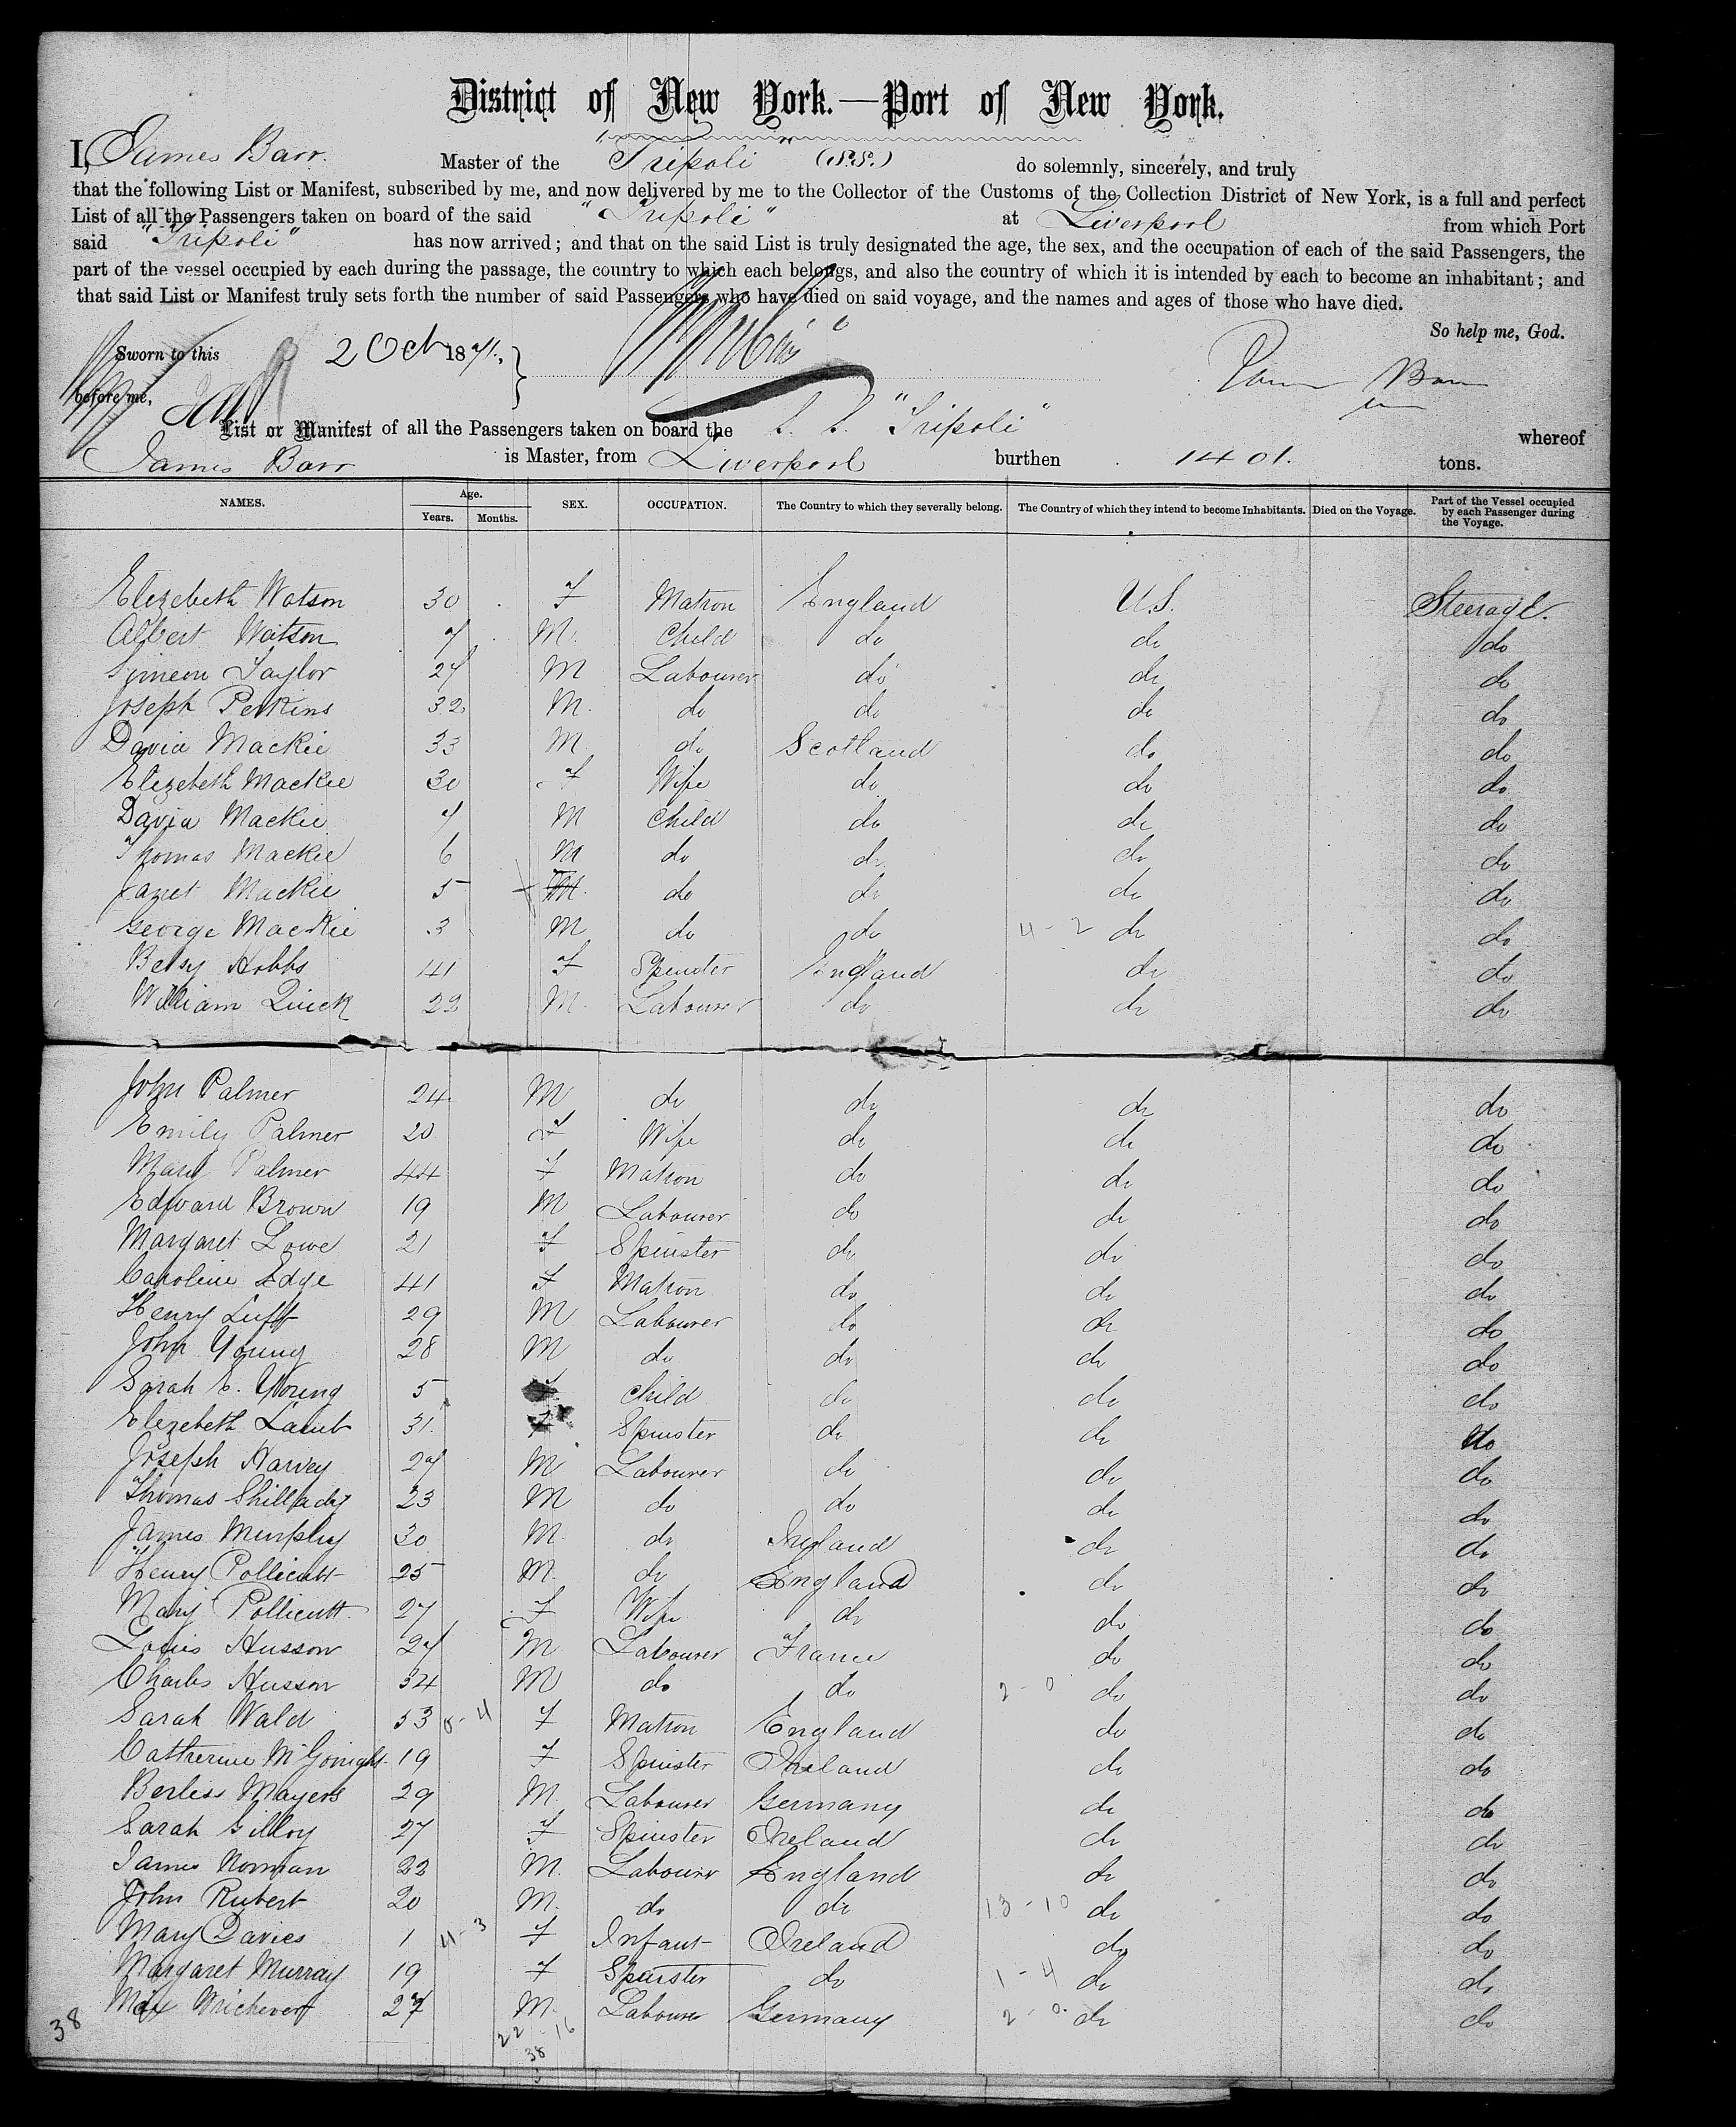 District of New York.—Port of New York.
I, James Barr. Master of the "Tripoli" (S.S.) do solemnly, sincerely, and truly
that the following List or Manifest, subscribed by me, and now delivered by me to the Collector of the Customs of the Collection District of New York, is a full and perfect
List of all the Passengers taken on board of the said "Tripoli" at Liverpool from which Port
said "Tripoli" has now arrived; and that on the said List is truly designated the age, the sex, and the occupation of each of the said Passengers, the
part of the vessel occupied by each during the passage, the country to which each belongs, and also the country of which it is intended by each to become an inhabitant; and
that said List or Manifest truly sets forth the number of said Passengers who have died on said voyage, and the names and ages of those who have died.
So help me, God.
Sworn to this 2 Oct 1871.
before me,
List or Manifest of all the Passengers taken on board the S. S. "Tripoli" whereof
James Barr is Master, from Liverpool burthen 1401. tons.
NAMES. Age. Years. Months. SEX. OCCUPATION. The Country to which they severally belong. The Country of which they intend to become Inhabitants. Died on the Voyage. Part of the Vessel occupied by each Passenger during the Voyage.
Elezebeth Watson 30 F Matron England U.S. Steerage.
Albert Watson 7 M. Child do do do
Simeon Taylor 27 M Labourer do do do
Joseph Perkins 32 M. do do do do
David Mackie 33 M do Scotland do do
Elezebeth Mackie 30 F Wife do do do
David Mackie 7 M Child do do do
Thomas Mackie 6 M do do do do
Janet Mackie 5 F do do do do
George Mackie 3 M do do 4-2 do do
Betsy Hobbs 41 F Spinster England do do
William Quick 22 M. Labourer do do do
John Palmer 24 M do do do do
Emily Palmer 20 F Wife do do do
Mary Palmer 44 F Matron do do do
Edward Brown 19 M Labourer do do do
Margaret Lowe 21 F Spinster do do do
Caroline Edge 41 F Matron do do do
Henry Luff 29 M Labourer do do do
John Young 28 M do do do do
Sarah E. Young 5 F Child do do do
Elezebeth Lamb 31. F Spinster do do do
Joseph Harvey 27 M Labourer do do do
Thomas Shillady 23 M do do do do
James Murphy 30 M. do Ireland do do
Henry Pollicutt 25 M. do England do do
Mary Pollicutt 27 F Wife do do do
Louis Husson 27 M Labourer France do do
Charles Husson 34 M do do 2-0 do do
Sarah Wald 33 F Matron England do do
Catherine 19 F Spinster Ireland do do
Mayers 29 M. Labourer Germany do do
Sarah Gilloy 27 F Spinster Ireland do do
James Norman 22 M. Labourer England do do
John Rubert 20 M. do do 13-10 do do
Mary Davies 1 4-3 F Infant Ireland do do
Margaret Murray 19 F Spinster do 1-4 do do
Max 27 M. Labourer Germany 2-0. do do
38 22-16
38